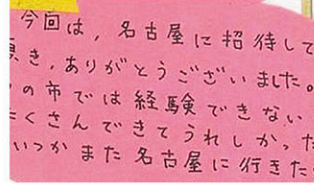 今回は,名古屋に招待して
頂き,ありがとうございました。
の市では経験できない
たくさんできてうれしかった
いつかまた名古屋に行きた